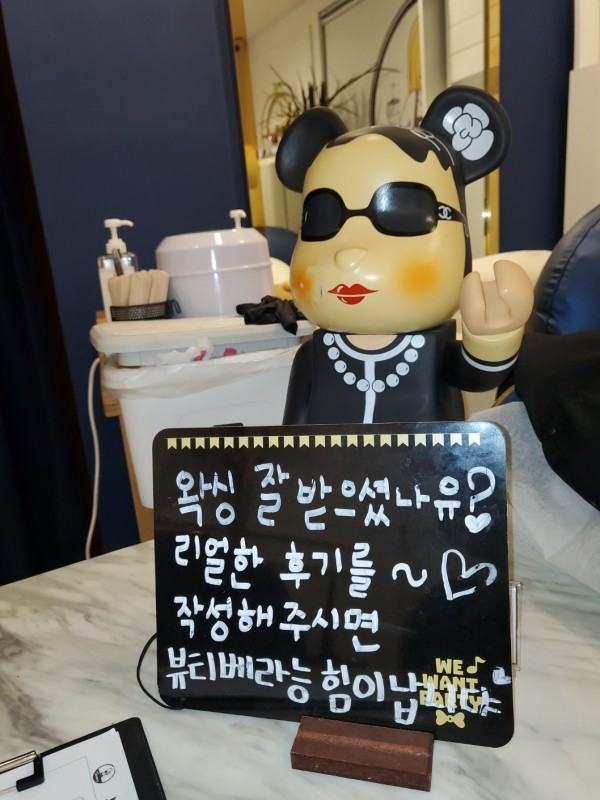 왁싱 잘 받으셨나유?
리얼한 후기를 ~
작성해주시면
뷰티베라능 힘이납니다
WE
WANT
PARTY